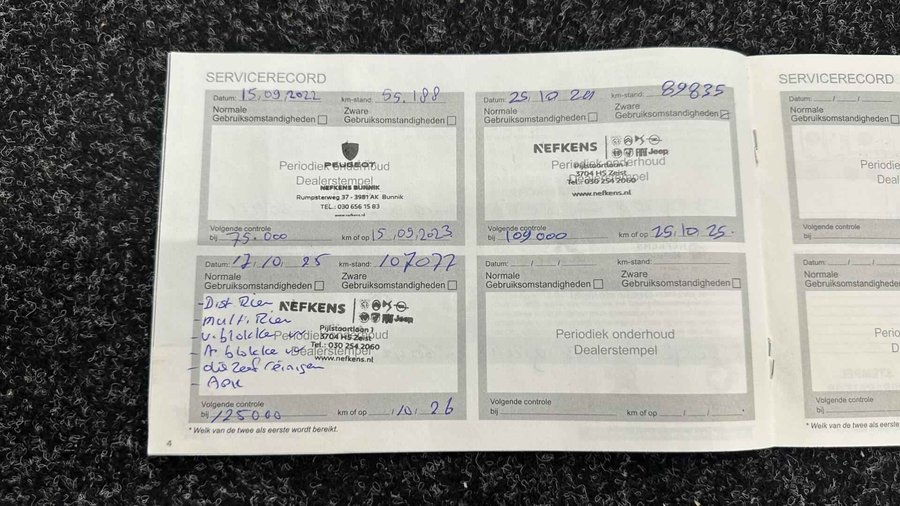 SERVICERECORD
Datum: 15.09.2022 km-stand: 55.188
Normale Gebruiksomstandigheden
Zware Gebruiksomstandigheden
Periodiek onderhoud
Dealerstempel
PEUGEOT
NEFKENS BUNNIK
Rumpsterweg 37 - 3981 AK Bunnik
TEL.: 030 656 15 83
www.nefkens.nl
Volgende controle
bij 75.000 km of op 15.09.2023
Datum: 25.10.24 km-stand: 89835
Normale Gebruiksomstandigheden
Zware Gebruiksomstandigheden
Periodiek onderhoud
Dealerstempel
NEFKENS
Jeep
Pijlstaartlaan 1
3704 HS Zeist
Tel.: 030 254 2060
www.nefkens.nl
Volgende controle
bij 109000 km of op 25.10.25.
Datum: 17.10.25 km-stand: 107077
Normale Gebruiksomstandigheden
Zware Gebruiksomstandigheden
- Dist Riem
- multi Riem
- v. blokke vv
- A blokke vv
- reinigen
- APK
Periodiek onderhoud
Dealerstempel
NEFKENS
Jeep
Pijlstaartlaan 1
3704 HS Zeist
Tel.: 030 254 2060
www.nefkens.nl
Volgende controle
bij 125000 km of op /10/26
Datum: / / km-stand:
Normale Gebruiksomstandigheden
Zware Gebruiksomstandigheden
Periodiek onderhoud
Dealerstempel
Volgende controle
bij km of op / /
* Welk van de twee als eerste wordt bereikt.
4
SERVICERECORD
Datum: / /
Normale
Gebruiksomstandigheden
Volgende controle
bij
Datum: / /
Normale
Gebruiksomstandigheden
Volgende controle
bij